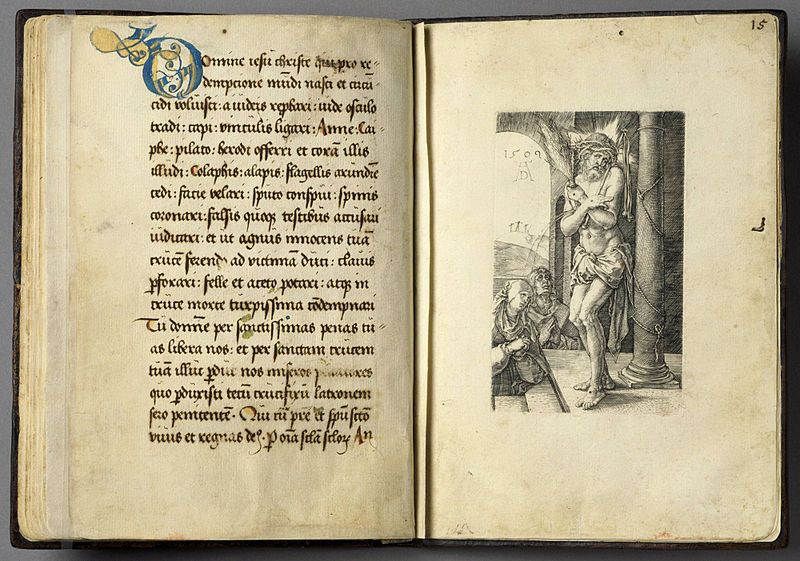 Domine iesu christe qui pro re-
demptione mūdi nasci et circū
cidi voluisti: a iudeis reprbari: iude osculo
tradi: capi: vinculis ligari: Anne: Cai
phe: pilato: herodi offerri et corā illis
illudi: Colaphis: alapis: flagellis arundīe
cedi: facie velari: sputo conspui: spinis
coronari: falsis quoqꝫ testibus accusari
iudicari: et ut agnus innocens tuā
crucē ferend ad victimā duci: clauis
ꝑforari: felle et aceto potari: atqꝫ in
cruce morte turpissima cōdempnari
Tu domīe per sanctissimas penas tu-
as libera nos: et per sanctam crucem
tuā illuc ꝑduc nos miseros peccatores
quo ꝑduxisti tecū crucifixū latronem
sero penitentē. Qui cū pre et spū scto
viuis et regnas
An
15
1509
AD